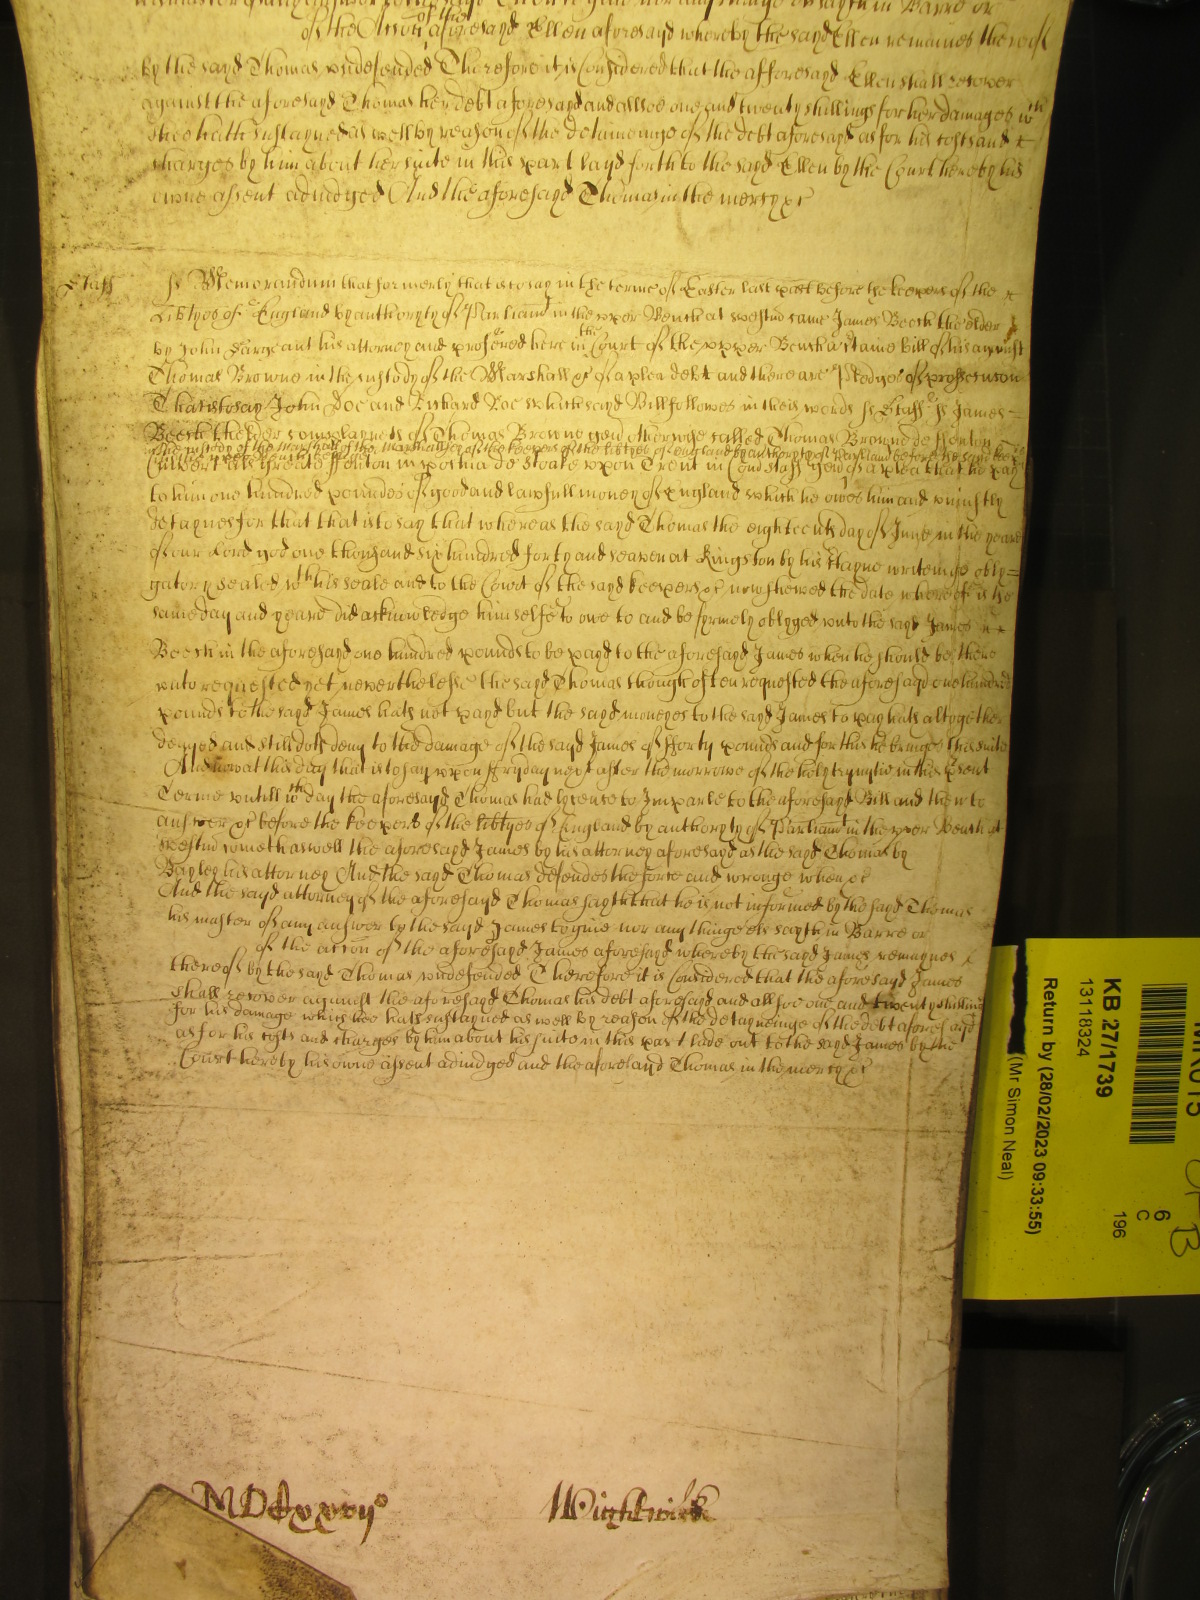 of the
of the Accon aforesayd Ellen aforesayd whereby the sayd Ellen remaines thereof
by the sayd Thomas undefended Therefore it is Considered that the afforesayd Ellen shall recover
against the aforesayd Thomas her debt aforesayd and allsoe one and twenty shillings for her damages wch
shee hath sustayned as well by reason of the detaineinge of the debt aforesayd as for his costs and
charges by him about her suite in this part layd forth to the sayd Ellen by the Court hereby his
owne assent adiudged And the aforesayd Thomas in the mercy &c
Staff
ss Memorandum that formerly that is to say in the terme of Easter last past before the keepers of the
Libtyes of England by authoryty of Parliamt in the upper Bench at Westmr came James Beech the elder
by John Sargeant his attorney and profered here in the Court of the upper Bench a certaine bill of his against
Thomas Browne in the custody of the Marshall &c of a plea debt and there are Pledges of prosecucon
That is to say John Doe and Richard Roe which sayd Bill followes in theis words ss Staff ss James
Beech the elder complayneth of Thomas Browne gent otherwise called Thomas Browne de ffenton
in the custody of the Marshall of the Marshallsey of the keepers of the libtyes of England by authoryty of Parliament before the same
Culvert als greate ffenton in pochia de Stoake uppon Trent in Com Staff gen of a plea that he pay
to him one hundred poundes of good and lawfull money of England which he owes him and uniustly
detaynes for that that is to say that whereas the sayd Thomas the eighteenth day of June in the yeare
of our Lord god one thousand six hundred forty and seaven at Kingston by his wryteinge obly=
gatory sealed wth his seale and to the Court of the sayd keepers &c now shewed the date whereof is the
same day and yeare did acknowledge himselfe to owe to and be fyrmely oblyged unto the sayd James
Beech in the aforesayd one hundred pounds to be payd to the aforesayd James when he should be there
unto requested yet neverthelesse the sayd Thomas though often requested the aforesayd one hundred
pounds to the sayd James hath not payd but the sayd moneyes to the sayd James to pay hath altogether
denyed and still doth deny to the damage of the sayd James of fforty pounds and for this he bringes this suite
And now at this day that is to say uppon ffryday next after the morrowe of the holy trynytie in this psent
Terme untill wch day the aforesayd Thomas had lycense to Imparle to the aforesayd Bill and then to
answer &c before the keepers of the libtyes of England by authoryty of Parliamt in the upper Bench at
Westmr cometh aswell the aforesayd James by his attorney aforesayd as the sayd Thomas by
Bayley his attorney And the sayd Thomas defendes the force and wronge when &c
And the sayd attorney of the aforesayd Thomas sayth that he is not informed by the sayd Thomas
his master of any answer to the sayd James to give nor any thinge els sayth in Barre or
of the accon of the aforesayd James aforesayd whereby the sayd James remaynes
thereof by the sayd Thomas undefended Therefore it is Considered that the aforesayd James
shall recover against the aforesayd Thomas his debt aforesayd and allsoe one and twenty shillings
for his damage which hee hath sustayned as well by reason of the detayneinge of the debt aforesayd
as for his costs and charges by him about his suite in this part laide out to the sayd James by the
Court hereby his owne assent adiudged and the aforesayd Thomas in the mercy &c
KB 27/1739
13118324
Return by (28/02/2023 09:33:55)
(Mr Simon Neal)
6
C
196